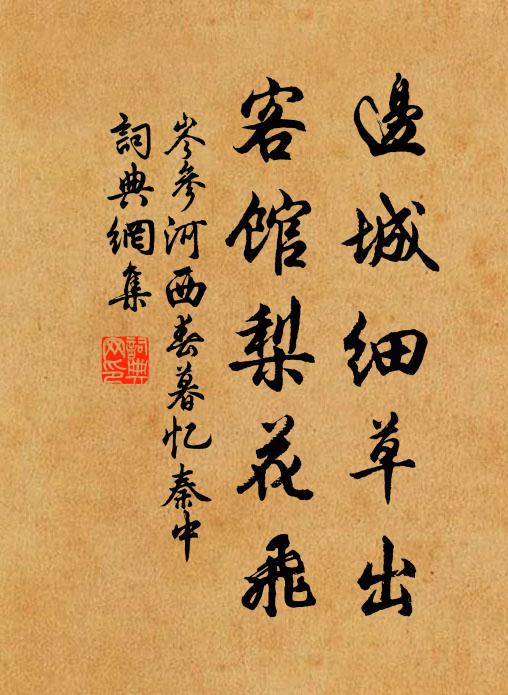 邊城細草出
客館梨花飛
岑參河西春暮忆秦中
詞典網集
詞典
网印